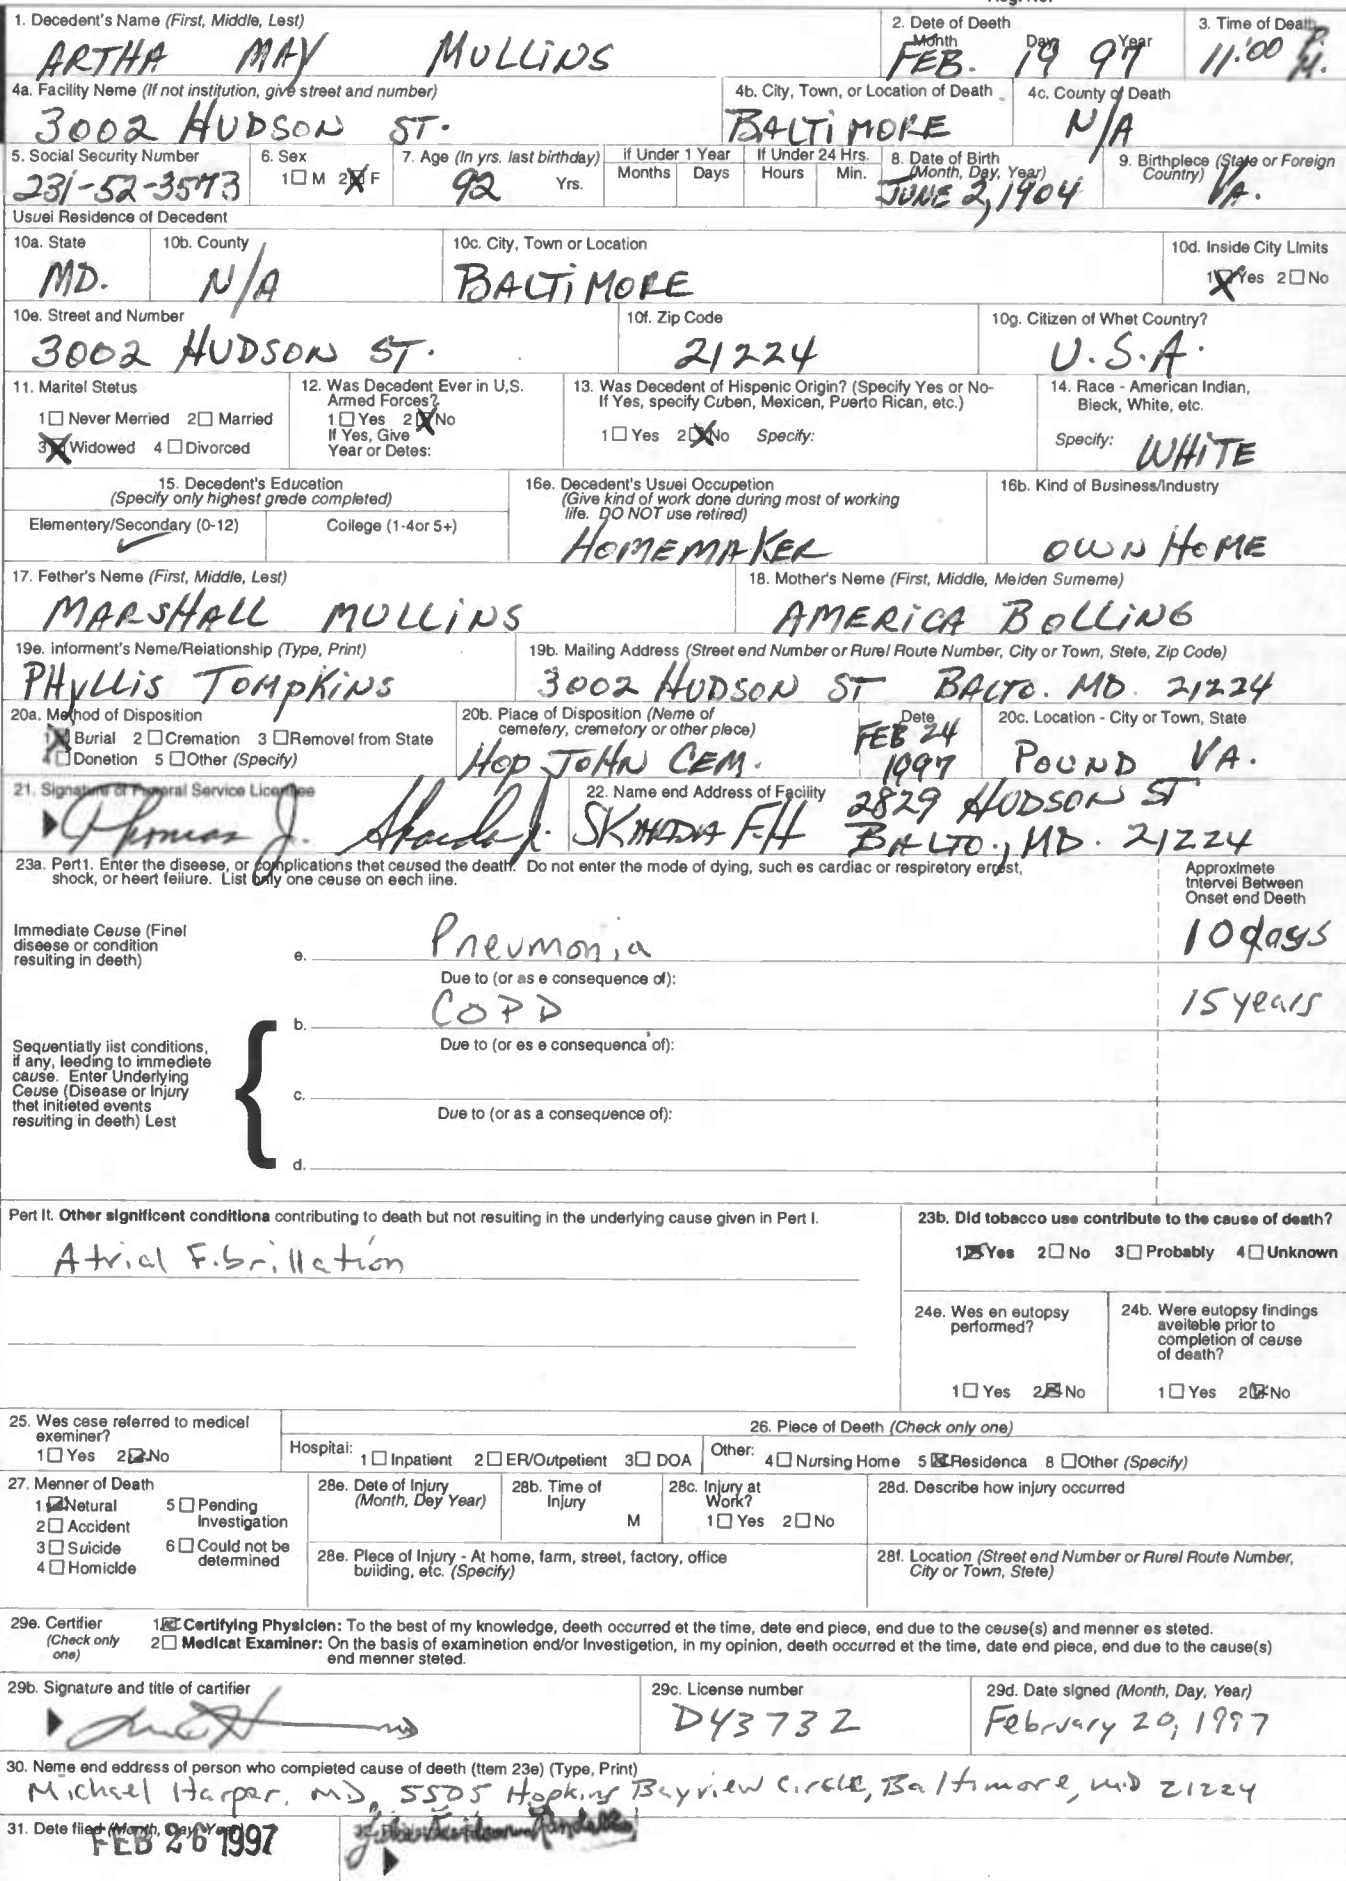 1. Decedent's Name (First, Middle, Lest)
ARTHA MAY MULLINS
2. Dete of Deeth
Month Day Year
FEB. 19 97
3. Time of Death
11:00 P.M.
4a. Facility Name (If not institution, give street and number)
3002 HUDSON ST.
4b. City, Town, or Location of Death
BALTIMORE
4c. County of Death
N/A
5. Social Security Number
231-52-3573
6. Sex
1☐ M 2☒ F
7. Age (In yrs. last birthday)
92 Yrs.
If Under 1 Year
Months Days
If Under 24 Hrs.
Hours Min.
8. Date of Birth
(Month, Day, Year)
JUNE 2, 1904
9. Birthplece (State or Foreign
Country)
VA.
Usuei Residence of Decedent
10a. State
MD.
10b. County
N/A
10c. City, Town or Location
BALTIMORE
10d. Inside City Limits
1☒ Yes 2☐ No
10e. Street and Number
3002 HUDSON ST.
10f. Zip Code
21224
10g. Citizen of Whet Country?
U.S.A.
11. Maritel Stetus
1☐ Never Merried 2☐ Married
3☒ Widowed 4☐ Divorced
12. Was Decedent Ever in U,S.
Armed Forces?
1☐ Yes 2☒ No
If Yes, Give
Year or Detes:
13. Was Decedent of Hispenic Origin? (Specify Yes or No-
If Yes, specify Cuben, Mexicen, Puerto Rican, etc.)
1☐ Yes 2☒ No Specify:
14. Race - American Indian,
Bieck, White, etc.
Specify: WHITE
15. Decedent's Education
(Specify only highest grede completed)
Elementery/Secondary (0-12) College (1-4or 5+)
✓
16e. Decedent's Usuei Occupetion
(Give kind of work done during most of working
life. DO NOT use retired)
HOMEMAKER
16b. Kind of Business/Industry
OWN HOME
17. Father's Name (First, Middle, Lest)
MARSHALL MULLINS
18. Mother's Name (First, Middle, Meiden Sumeme)
AMERICA BOLLING
19e. informent's Name/Relationship (Type, Print)
PHYLLIS TOMPKINS
19b. Mailing Address (Street end Number or Rurel Route Number, City or Town, Stete, Zip Code)
3002 HUDSON ST BALTO. MD. 21224
20a. Method of Disposition
☒ Burial 2☐ Cremation 3☐ Removel from State
4☐ Donetion 5☐ Other (Specify)
20b. Place of Disposition (Neme of
cemetery, cremetory or other plece)
HOP JOHN CEM.
Dete
FEB 24
1997
20c. Location - City or Town, State
POUND VA.
21. Signature of Funeral Service Licensee
Thomas J.
22. Name end Address of Faciiity
F.H 2829 HUDSON ST
BALTO., MD. 21224
23a. Pert1. Enter the diseese, or complications thet ceused the death. Do not enter the mode of dying, such es cardiac or respiretory errest,
shock, or heert feiiure. List only one ceuse on eech iine.
Approximete
Intervei Between
Onset end Deeth
Immediate Ceuse (Finel
diseese or condition
resulting in death)
e. Pneumonia 10 days
Due to (or as e consequence of):
b. COPD 15 years
Due to (or es e consequenca of):
Sequentially iist conditions,
if any, leeding to immediete
cause. Enter Underlying
Ceuse (Disease or Injury
thet initieted events
resulting in deeth) Lest
c.
Due to (or as a consequence of):
d.
Pert It. Other significent conditiona contributing to death but not resulting in the underlying cause given in Pert I.
Atrial Fibrillation
23b. Did tobacco use contribute to the cause of death?
1☒ Yes 2☐ No 3☐ Probably 4☐ Unknown
24e. Wes en eutopsy
performed?
1☐ Yes 2☒ No
24b. Were eutopsy findings
aveiteble prior to
completion of ceuse
of death?
1☐ Yes 2☒ No
25. Wes cese referred to medicel
exeminer?
1☐ Yes 2☒ No
26. Plece of Deeth (Check only one)
Hospitai: 1☐ Inpatient 2☐ ER/Outpetient 3☐ DOA
Other: 4☐ Nursing Home 5☒ Residenca 8☐ Other (Specify)
27. Menner of Death
1☒ Netural 5☐ Pending
Investigation
2☐ Accident
3☐ Suicide 6☐ Could not be
determined
4☐ Homicide
28e. Dete of Injury
(Month, Dey Year)
28b. Time of
Injury
M
28c. Injury at
Work?
1☐ Yes 2☐ No
28d. Describe how injury occurred
28e. Plece of Injury - At home, farm, street, factory, office
buiiding, etc. (Specify)
28f. Location (Street end Number or Rurel Route Number,
City or Town, Stete)
29e. Certifier
(Check only
one)
1☒ Certifying Physicien: To the best of my knowledge, deeth occurred et the time, dete end piece, end due to the ceuse(s) end menner es steted.
2☐ Medicat Examiner: On the basis of exeminetion end/or Investigetion, in my opinion, deeth occurred et the time, date end piece, end due to the cause(s)
end menner steted.
29b. Signature and title of cartifier
29c. License number
D43732
29d. Date signed (Month, Day, Year)
February 20, 1997
30. Neme end eddress of person who completed cause of death (Item 23e) (Type, Print)
Michael Harper, MD, 5505 Hopkins Bayview Circle, Baltimore, MD 21224
31. Dete filed (Month, Day, Year)
FEB 26 1997